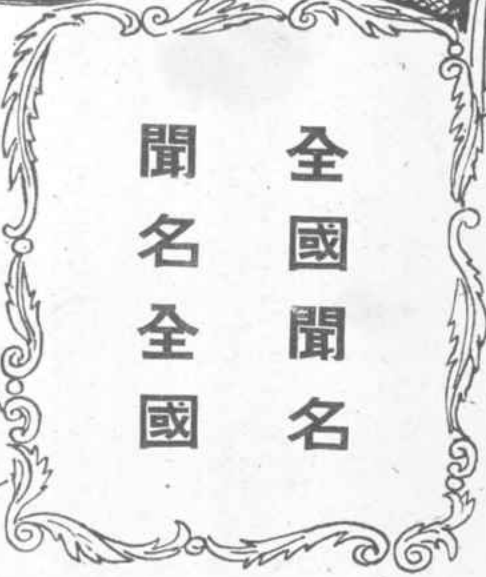 全國聞名
聞名全國